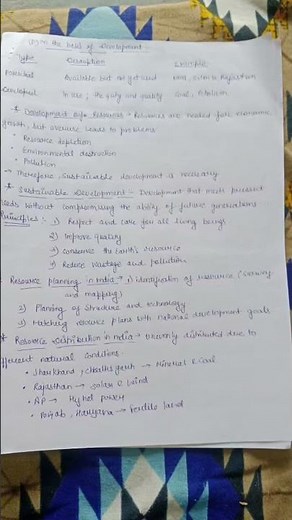 on the basis of development -
Type Description Example
Potential Available but not yet used wind, solar in Rajasthan
Developed In use; quality and quantity Coal, Petroleum
* Development of Resources - Resources are needed for economic
growth, but overuse leads to problems
• Resource depletion
• Environmental destruction
• Pollution
→ Therefore, sustainable development is necessary
* Sustainable Development - Development that meets present
needs without compromising the ability of future generations
Principles : 1) Respect and care for all living beings
2) Improve quality
3) Conserve the Earth's resources
4) Reduce wastage and pollution
Resource Planning in India → 1) identification of resources (
and mapping)
2) Planning of structure and technology
3) Matching resource plans with national development goals
* Resource distribution in India - Unevenly distributed due to
different natural conditions.
• Jharkhand, chhattisgarh → Mineral & Coal
• Rajasthan → solar & wind
• AP → Hydel power
• Punjab, Haryana → fertile land